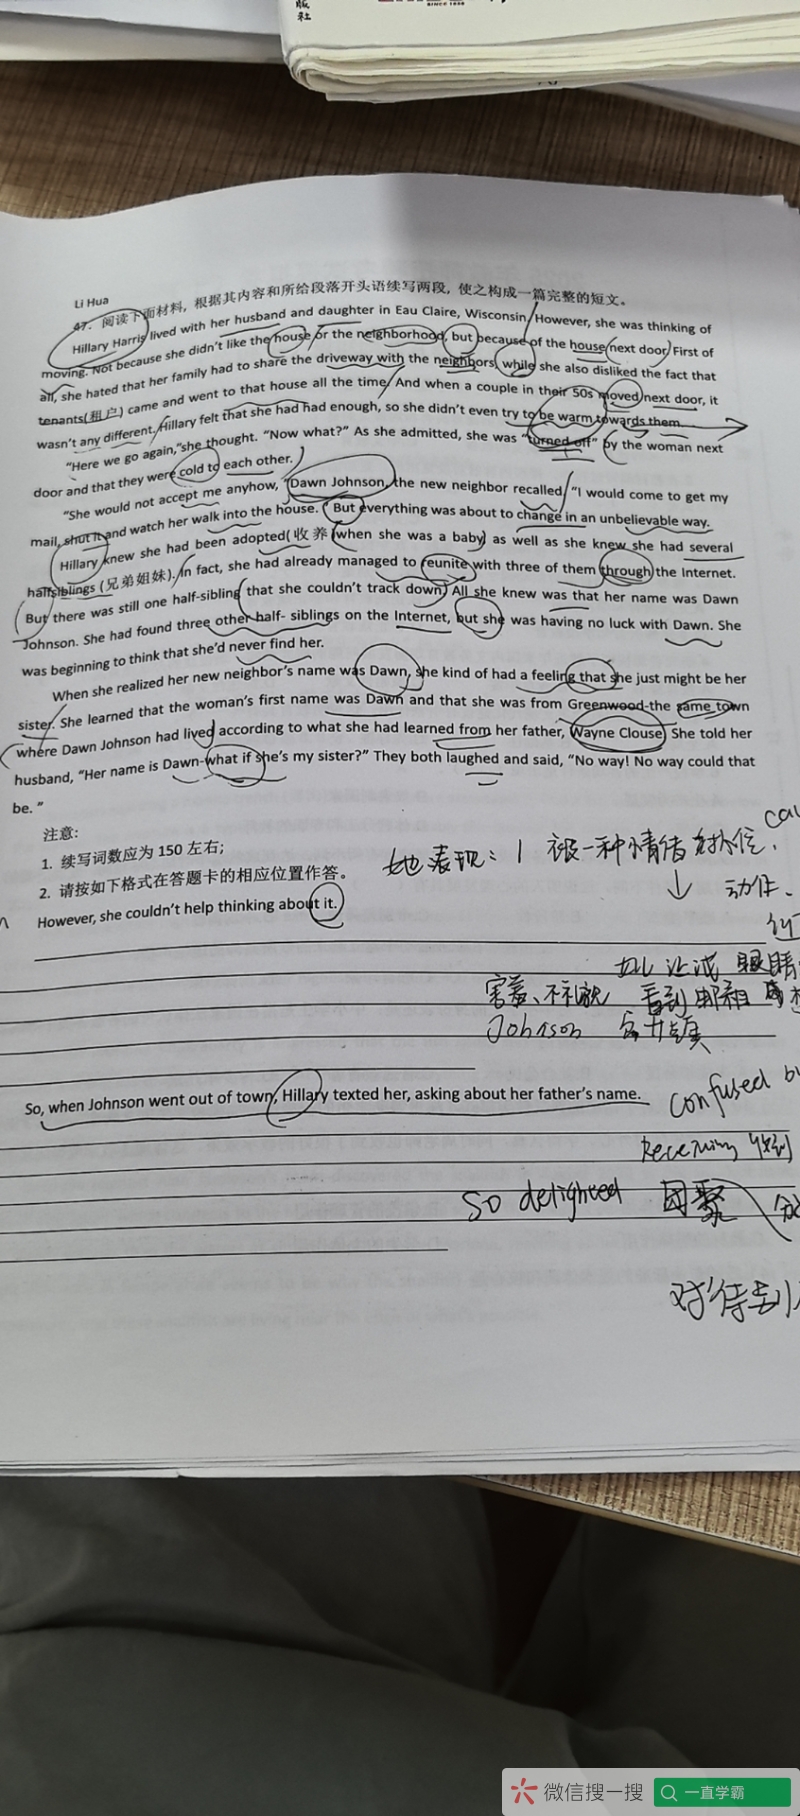 版社
SINCE 1938
Li Hua
47. 阅读下面材料，根据其内容和所给段落开头语续写两段，使之构成一篇完整的短文。
Hillary Harris lived with her husband and daughter in Eau Claire, Wisconsin. However, she was thinking of
moving. Not because she didn't like the house or the neighborhood, but because of the house next door. First of
all, she hated that her family had to share the driveway with the neighbors, while she also disliked the fact that
tenants(租户) came and went to that house all the time. And when a couple in their 50s moved next door, it
wasn't any different. Hillary felt that she had had enough, so she didn't even try to be warm towards them.
"Here we go again,"she thought. "Now what?" As she admitted, she was "turned off" by the woman next
door and that they were cold to each other.
"She would not accept me anyhow, "Dawn Johnson, the new neighbor recalled, "I would come to get my
mail, shut it and watch her walk into the house. But everything was about to change in an unbelievable way.
Hillary knew she had been adopted(收养) when she was a baby as well as she knew she had several
halfsiblings (兄弟姐妹). In fact, she had already managed to reunite with three of them through the Internet.
But there was still one half-sibling that she couldn't track down. All she knew was that her name was Dawn
Johnson. She had found three other half- siblings on the Internet, but she was having no luck with Dawn. She
was beginning to think that she'd never find her.
When she realized her new neighbor's name was Dawn, she kind of had a feeling that she just might be her
sister. She learned that the woman's first name was Dawn and that she was from Greenwood-the same town
where Dawn Johnson had lived according to what she had learned from her father, Wayne Clouse. She told her
husband, "Her name is Dawn-what if she's my sister?" They both laughed and said, "No way! No way could that
be. "
注意:
1. 续写词数应为 150 左右;
2. 请按如下格式在答题卡的相应位置作答。
她表现: 1 被一种情绪
↓ 动作、
However, she couldn't help thinking about it.
眼睛
害羞、不礼貌 看到邮箱
Johnson
So, when Johnson went out of town, Hillary texted her, asking about her father's name.
confused
Receiving 收到
So delighted 团聚
对待
微信搜一搜
一直学霸